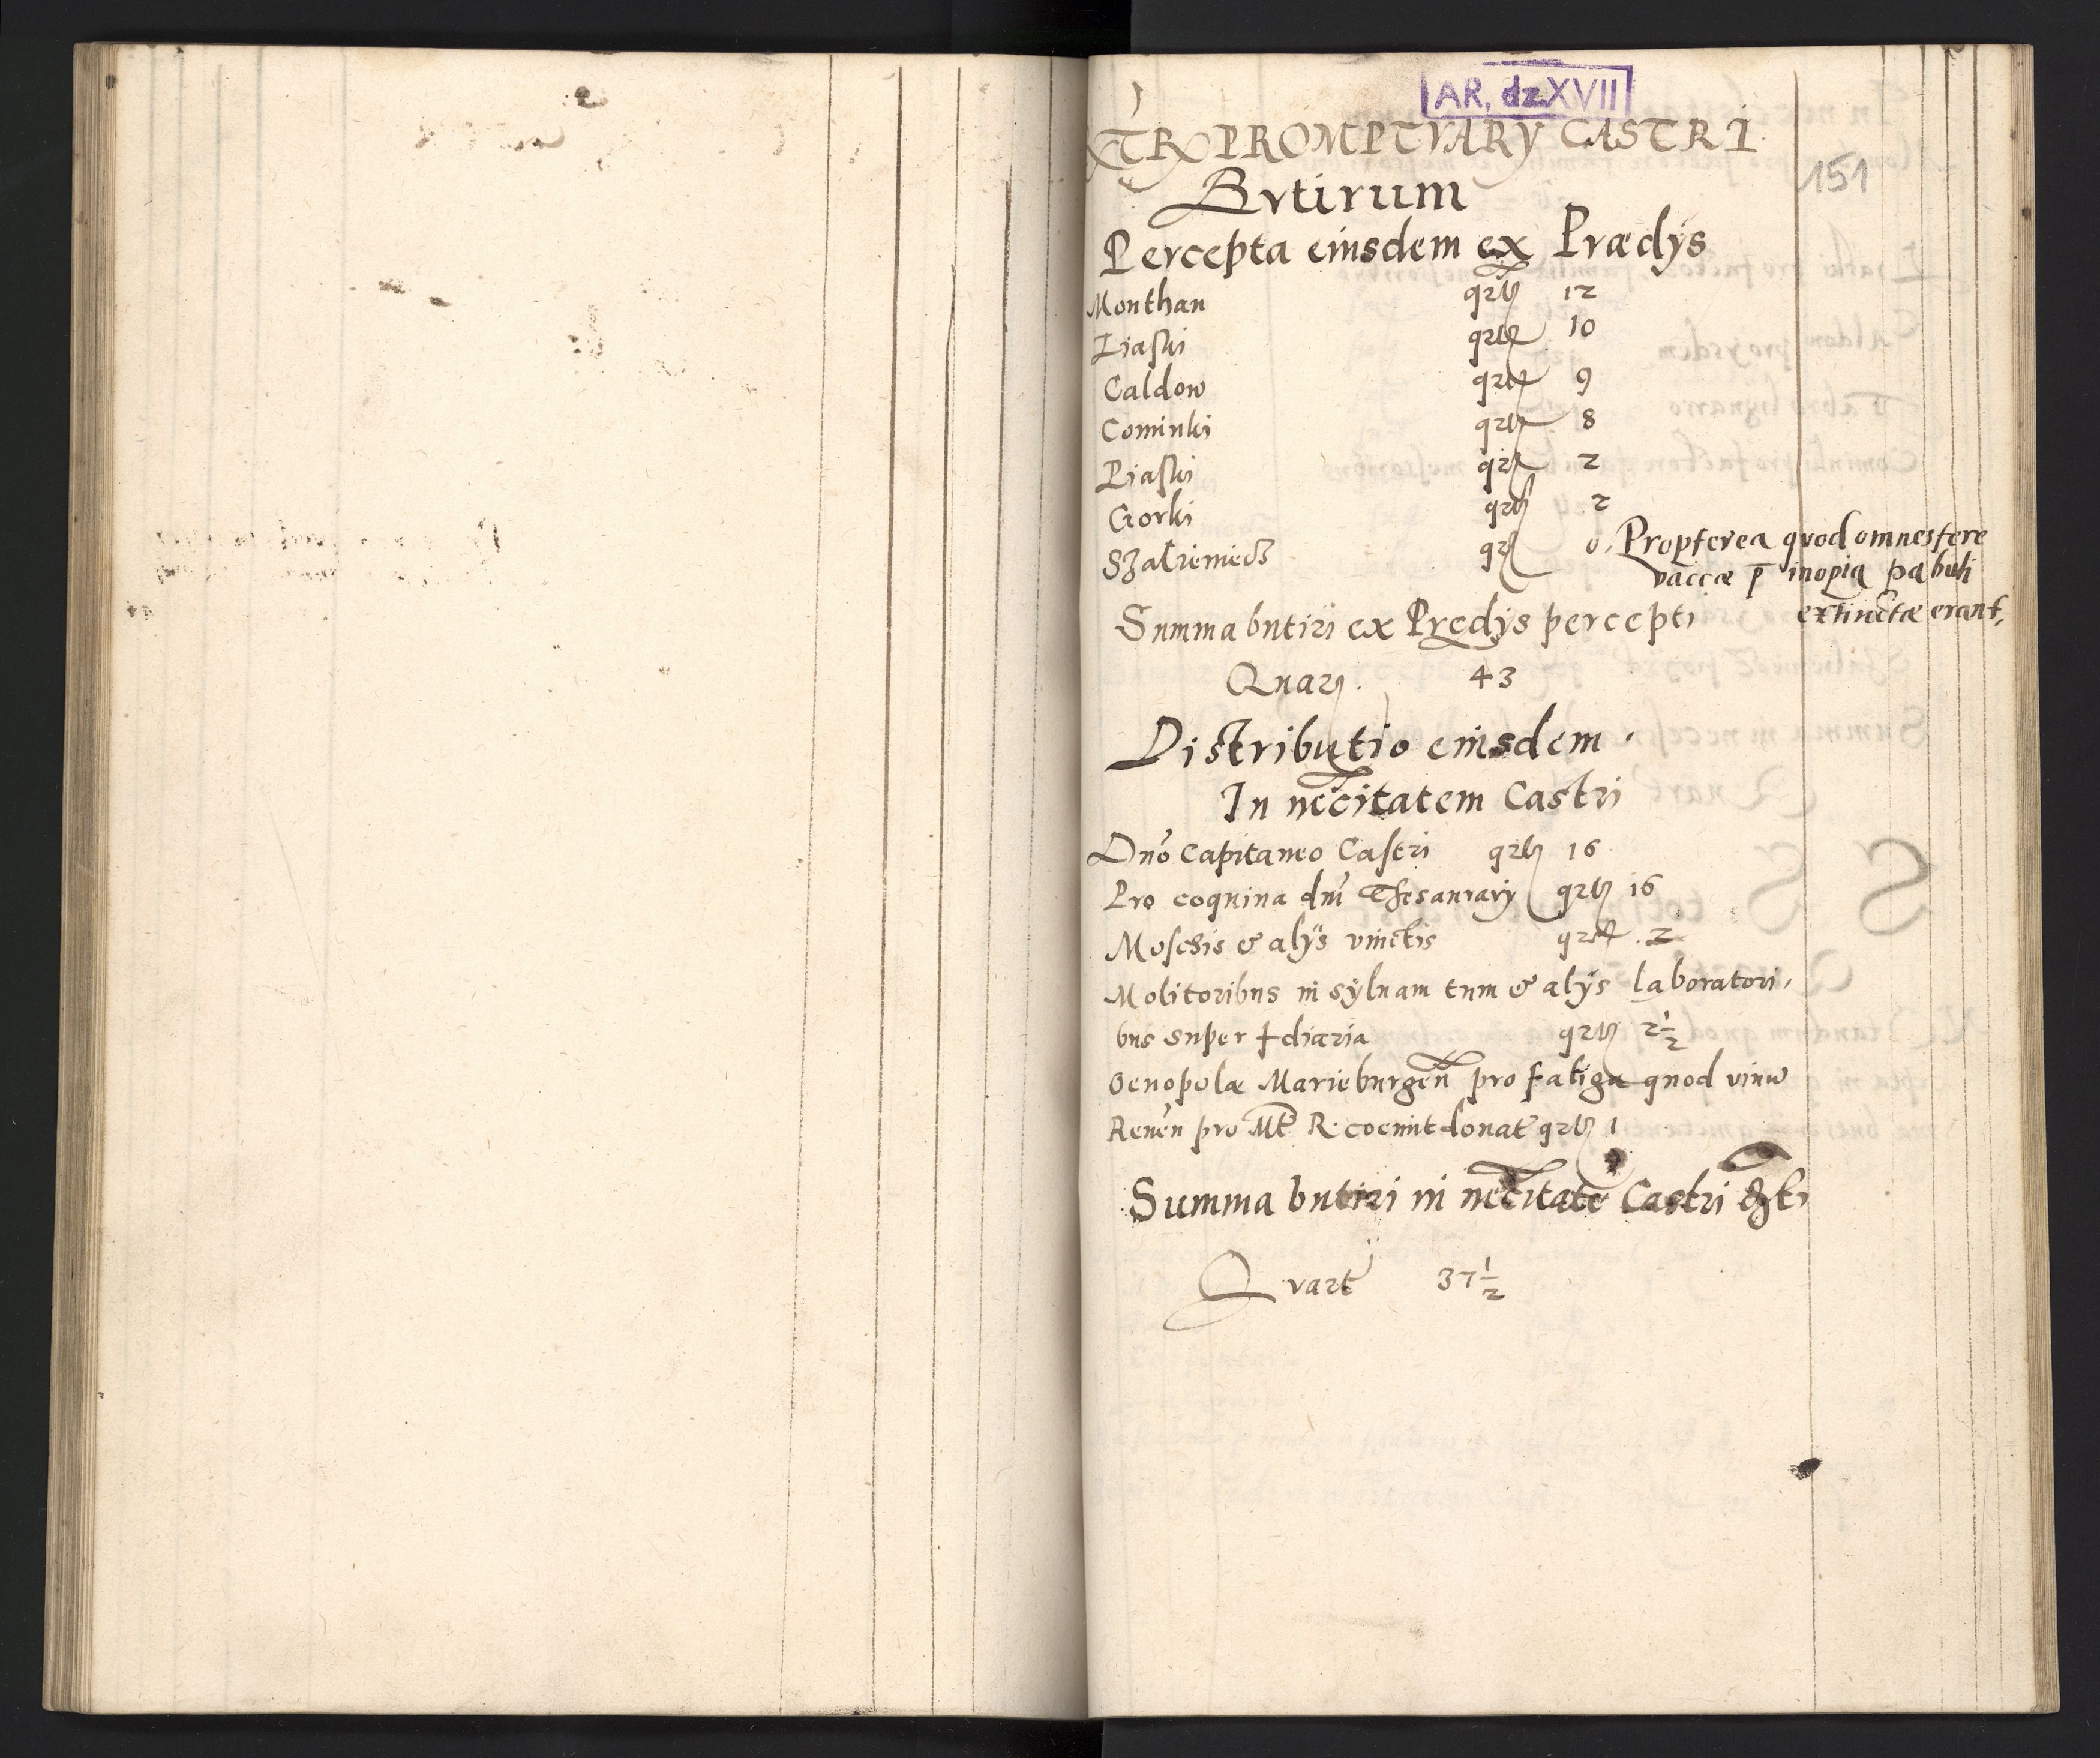 AR, dz XVII
XTRX PROMPTVARY CASTRI
151
Bvtirum
Percepta eiusdem ex Prædÿs
Monthan qrtt 12
Liaski qrtt 10
Caldow qrtt 9
Cominki qrtt 8
Piaski qrtt 2
Gorki qrtt 2
Szakieniecz qrt 0. Propterea quod omnes fere
vaccæ p̄ inopia pabuli
extinctæ erant,
Summa butiri ex Predÿs percepti
Quart. 43
Distributio eiusdem.
In necc̃itatem Castri
Dnõ Capitaneo Castri qrtt 16
Pro coquina dnĩ Thesaurarÿ qrtt 16
Moschis & alÿs vinctis qrtt 2
Molitoribus in syluam tum & alÿs laboratori,
bus super diæria qrtt 2½
Oenopolæ Marieburgeñ pro fatiga quod vinũ
Reneñ pro Mtẽ R. coemit donat̃ qrtt 1
Summa butiri in necc̃itatẽ Castri
Qvart 37½